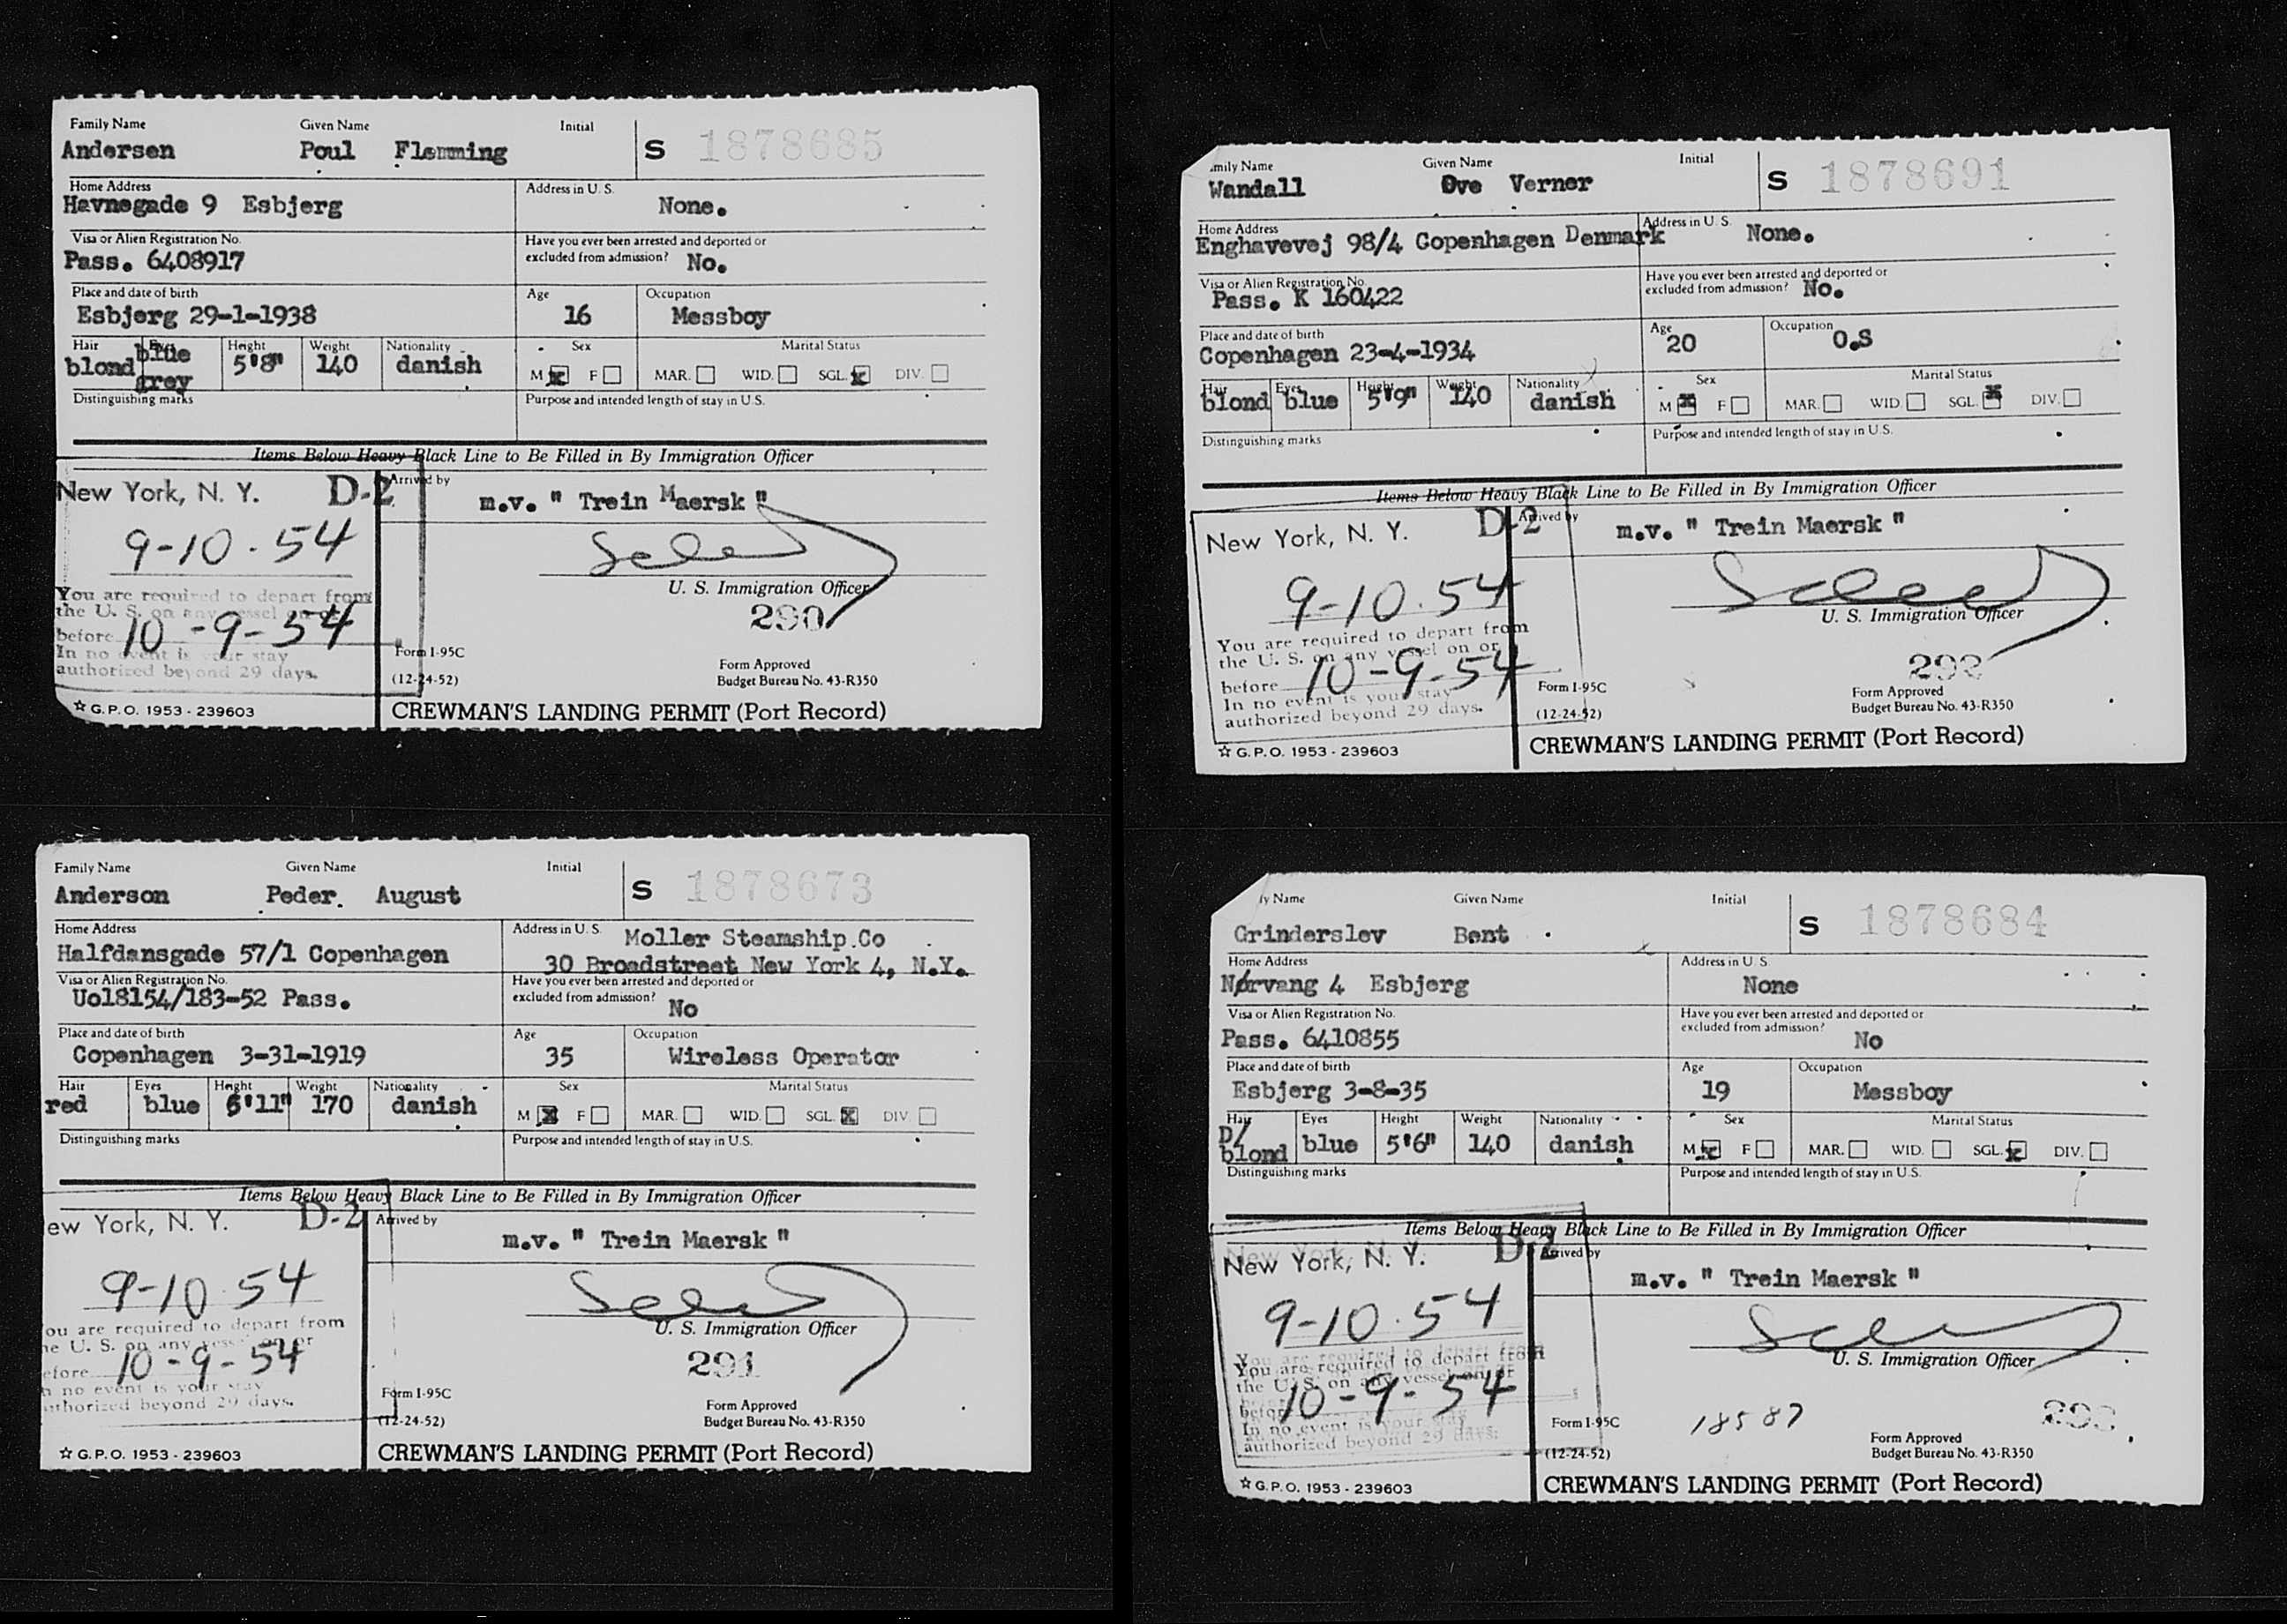 Family Name Given Name Initial
Andersen Poul Flemming S 1878685
Home Address Address in U. S.
Havnegade 9 Esbjerg None.
Visa or Alien Registration No. Have you ever been arrested and deported or
Pass. 6408917 excluded from admission? No.
Place and date of birth Age Occupation
Esbjerg 29-1-1938 16 Messboy
Hair Eyes Height Weight Nationality Sex Marital Status
blond blue grey 5'8" 140 danish M F MAR. WID. SGL. DIV.
Distinguishing marks Purpose and intended length of stay in U.S.
Items Below Heavy Black Line to Be Filled in By Immigration Officer
New York, N. Y. D-2 Arrived by
m.v. " Trein Maersk "
9-10-54
U. S. Immigration Officer
You are required to depart from
the U. S. on any vessel on or
before 10-9-54
290
In no event is your stay
authorized beyond 29 days.
Form I-95C
(12-24-52)
Form Approved
Budget Bureau No. 43-R350
☆ G.P.O. 1953 - 239603
CREWMAN'S LANDING PERMIT (Port Record)
mily Name Given Name Initial
Wandall Ove Verner S 1878691
Home Address Address in U. S.
Enghavevej 98/4 Copenhagen Denmark None.
Visa or Alien Registration No. Have you ever been arrested and deported or
Pass. K 160422 excluded from admission? No.
Place and date of birth Age Occupation
Copenhagen 23-4-1934 20 O.S
Hair Eyes Height Weight Nationality Sex Marital Status
blond blue 5'9" 140 danish M F MAR. WID. SGL. DIV.
Distinguishing marks Purpose and intended length of stay in U.S.
Items Below Heavy Black Line to Be Filled in By Immigration Officer
New York, N. Y. D-2 Arrived by
m.v. " Trein Maersk "
9-10.54
U. S. Immigration Officer
You are required to depart from
the U. S. on any vessel on or
before 10-9-54
In no event is your stay
authorized beyond 29 days.
Form I-95C
(12-24-52)
Form Approved
Budget Bureau No. 43-R350
☆ G.P.O. 1953 - 239603
CREWMAN'S LANDING PERMIT (Port Record)
Family Name Given Name Initial
Anderson Peder. August S 1878673
Home Address Address in U. S.
Halfdansgade 57/1 Copenhagen Moller Steamship.Co
30 Broadstreet New York 4, N.Y.
Visa or Alien Registration No. Have you ever been arrested and deported or
Uo18154/183-52 Pass. excluded from admission? No
Place and date of birth Age Occupation
Copenhagen 3-31-1919 35 Wireless Operator
Hair Eyes Height Weight Nationality Sex Marital Status
red blue 170 danish M F MAR. WID. SGL. DIV.
Distinguishing marks Purpose and intended length of stay in U.S.
Items Below Heavy Black Line to Be Filled in By Immigration Officer
ew York, N. Y. D-2 Arrived by
m.v. " Trein Maersk "
9-10 54
U. S. Immigration Officer
ou are required to depart from
he U. S. on any vessel on or
efore 10-9-54
291
n no event is your stay
uthorized beyond 29 days.
Form I-95C
(12-24-52)
Form Approved
Budget Bureau No. 43-R350
☆ G.P.O. 1953 - 239603
CREWMAN'S LANDING PERMIT (Port Record)
ly Name Given Name Initial
Grinderslev Bent S 1878684
Home Address Address in U. S.
Nørvang 4 Esbjerg None
Visa or Alien Registration No. Have you ever been arrested and deported or
Pass. 6410855 excluded from admission? No
Place and date of birth Age Occupation
Esbjerg 3-8-35 19 Messboy
Hair Eyes Height Weight Nationality Sex Marital Status
D/ blond blue 5'6" 140 danish M F MAR. WID. SGL. DIV.
Distinguishing marks Purpose and intended length of stay in U.S.
Items Below Heavy Black Line to Be Filled in By Immigration Officer
New York, N. Y. D-2 Arrived by
m.v. " Trein Maersk "
9-10.54
U. S. Immigration Officer
You are required to depart from
the U. S. on any vessel on or
before 10-9-54
In no event is your stay
authorized beyond 29 days.
Form I-95C
(12-24-52)
18587
Form Approved
Budget Bureau No. 43-R350
☆ G.P.O. 1953 - 239603
CREWMAN'S LANDING PERMIT (Port Record)